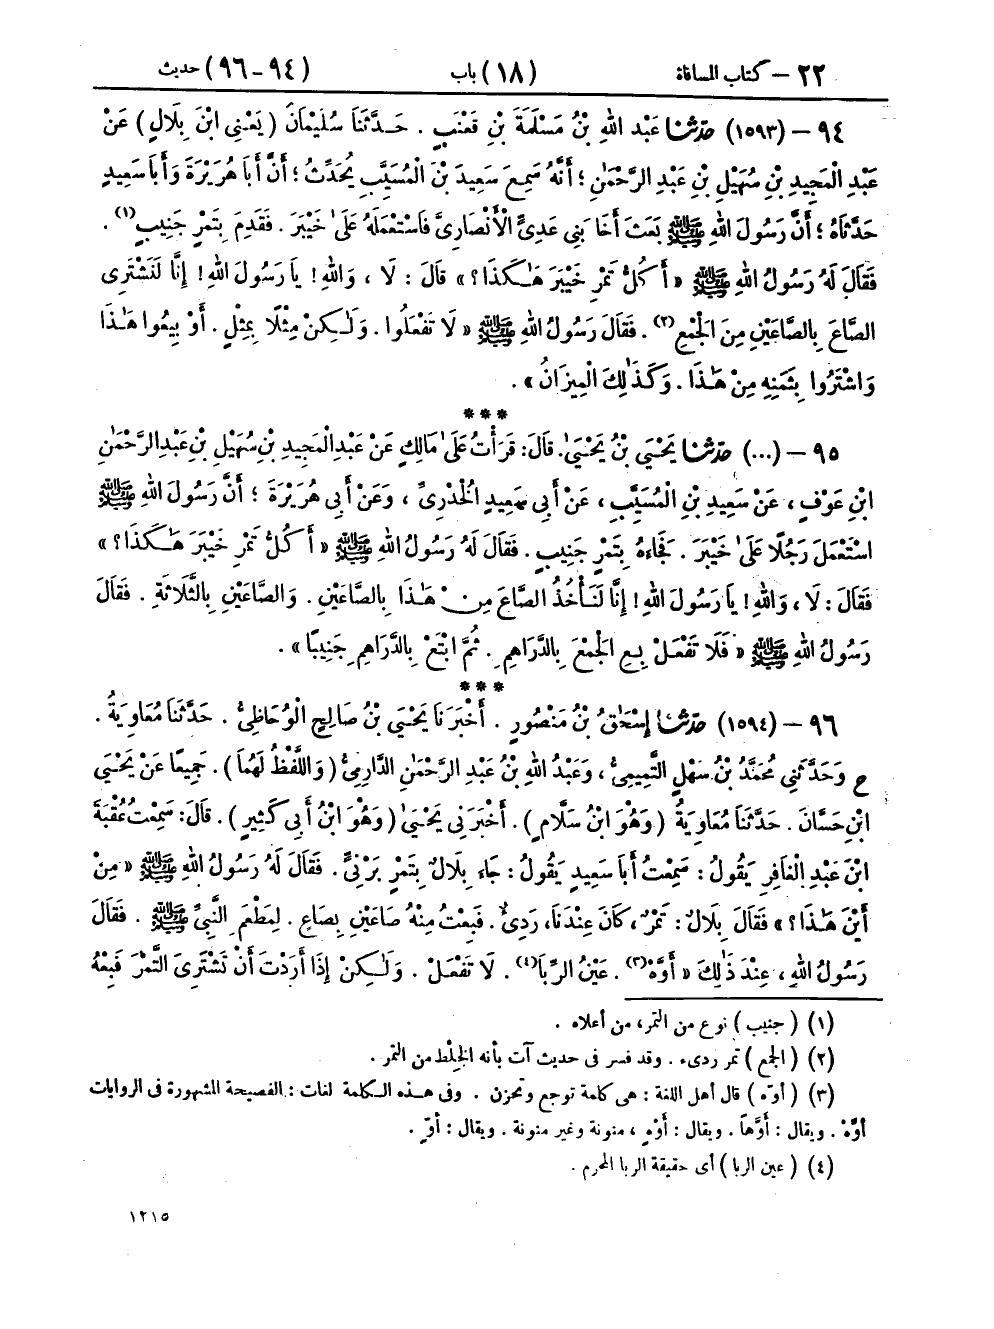 ٢٢ – كتاب المساقاة (١٨) باب (٩٤ – ٩٦) حديث
٩٤ – (١٥٩٣) حَدَّثَنَا عَبْدُ اللهِ بْنُ مَسْلَمَةَ بْنِ قَعْنَبٍ . حَدَّثَنَا سُلَيْمَانُ ( يَعْنِي ابْنَ بِلَالٍ ) عَنْ
عَبْدِ الْمَجِيدِ بْنِ سُهَيْلِ بْنِ عَبْدِ الرَّحْمٰنِ ؛ أَنَّهُ سَمِعَ سَعِيدَ بْنَ الْمُسَيَّبِ يُحَدِّثُ ؛ أَنَّ أَبَا هُرَيْرَةَ وَأَبَا سَعِيدٍ
حَدَّثَاهُ ؛ أَنَّ رَسُولَ اللهِ ﷺ بَعَثَ أَخَا بَنِي عَدِيٍّ الْأَنْصَارِىَّ فَاسْتَعْمَلَهُ عَلَىٰ خَيْبَرَ . فَقَدِمَ بِتَمْرٍ جَنِيبٍ (١) .
فَقَالَ لَهُ رَسُولُ اللهِ ﷺ « أَكُلُّ تَمْرِ خَيْبَرَ هَٰكَذَا ؟ » قَالَ : لَا ، وَاللهِ ! يَا رَسُولَ اللهِ ! إِنَّا لَنَشْتَرِى
الصَّاعَ بِالصَّاعَيْنِ مِنَ الْجَمْعِ (٢) . فَقَالَ رَسُولُ اللهِ ﷺ « لَا تَفْعَلُوا . وَلَٰكِنْ مِثْلًا بِمِثْلٍ . أَوْ بِيعُوا هَٰذَا
وَاشْتَرُوا بِثَمَنِهِ مِنْ هَٰذَا . وَكَذَٰلِكَ الْمِيزَانُ » .
***
٩٥ – (...) حَدَّثَنَا يَحْيَى بْنُ يَحْيَىٰ. قَالَ: قَرَأْتُ عَلَىٰ مَالِكٍ عَنْ عَبْدِ الْمَجِيدِ بْنِ سُهَيْلِ بْنِ عَبْدِ الرَّحْمٰنِ
ابْنِ عَوْفٍ ، عَنْ سَعِيدِ بْنِ الْمُسَيَّبِ ، عَنْ أَبِي سَعِيدٍ الْخُدْرِىِّ ، وَعَنْ أَبِي هُرَيْرَةَ ؛ أَنَّ رَسُولَ اللهِ ﷺ
اسْتَعْمَلَ رَجُلًا عَلَىٰ خَيْبَرَ . فَجَاءَهُ بِتَمْرٍ جَنِيبٍ . فَقَالَ لَهُ رَسُولُ اللهِ ﷺ « أَكُلُّ تَمْرِ خَيْبَرَ هَٰكَذَا ؟ »
فَقَالَ : لَا ، وَاللهِ ! يَا رَسُولَ اللهِ ! إِنَّا لَنَأْخُذُ الصَّاعَ مِنْ هَٰذَا بِالصَّاعَيْنِ . وَالصَّاعَيْنِ بِالثَّلَاثَةِ . فَقَالَ
رَسُولُ اللهِ ﷺ « فَلَا تَفْعَلْ بِعِ الْجَمْعَ بِالدَّرَاهِمِ . ثُمَّ ابْتَعْ بِالدَّرَاهِمِ جَنِيبًا » .
***
٩٦ – (١٥٩٤) حَدَّثَنَا إِسْحَٰقُ بْنُ مَنْصُورٍ . أَخْبَرَنَا يَحْيَى بْنُ صَالِحٍ الْوُحَاظِيُّ . حَدَّثَنَا مُعَاوِيَةُ .
ح وَحَدَّثَنِي مُحَمَّدُ بْنُ سَهْلٍ التَّمِيمِيُّ ، وَعَبْدُ اللهِ بْنُ عَبْدِ الرَّحْمٰنِ الدَّارِمِيُّ ( وَاللَّفْظُ لَهُمَا ) . جَمِيعًا عَنْ يَحْيَى
ابْنِ حَسَّانَ . حَدَّثَنَا مُعَاوِيَةُ ( وَهُوَ ابْنُ سَلَّامٍ ) . أَخْبَرَنِي يَحْيَىٰ ( وَهُوَ ابْنُ أَبِي كَثِيرٍ ) . قَالَ: سَمِعْتُ عُقْبَةَ
ابْنَ عَبْدِ الْغَافِرِ يَقُولُ : سَمِعْتُ أَبَا سَعِيدٍ يَقُولُ : جَاءَ بِلَالٌ بِتَمْرٍ بَرْنِيٍّ . فَقَالَ لَهُ رَسُولُ اللهِ ﷺ « مِنْ
أَيْنَ هَٰذَا ؟ » فَقَالَ بِلَالٌ : تَمْرٌ ، كَانَ عِنْدَنَا، رَدِيءٌ . فَبِعْتُ مِنْهُ صَاعَيْنِ بِصَاعٍ . لِمَطْعَمِ النَّبِيِّ ﷺ . فَقَالَ
رَسُولُ اللهِ ، عِنْدَ ذَٰلِكَ « أَوَّهْ (٣) . عَيْنُ الرِّبَا (٤) . لَا تَفْعَلْ . وَلَٰكِنْ إِذَا أَرَدْتَ أَنْ تَشْتَرِىَ التَّمْرَ فَبِعْهُ
(١) ( جنيب ) نوع من التمر، من أعلاه .
(٢) ( الجمع ) تمر ردىء . وقد فسر فى حديث آت بأنه الخِلْط من التمر .
(٣) ( أوّه ) قال أهل اللغة : هى كلمة توجع وتحزن . وفى هذه الكلمة لغات : الفصيحة المشهورة فى الروايات
أوَّهْ . ويقال : أَوَّهاً . ويقال : أَوْهِ ، منونة وغير منونة . ويقال : أوِّ .
(٤) ( عين الربا ) أى حقيقة الربا المحرم .
١٢١٥